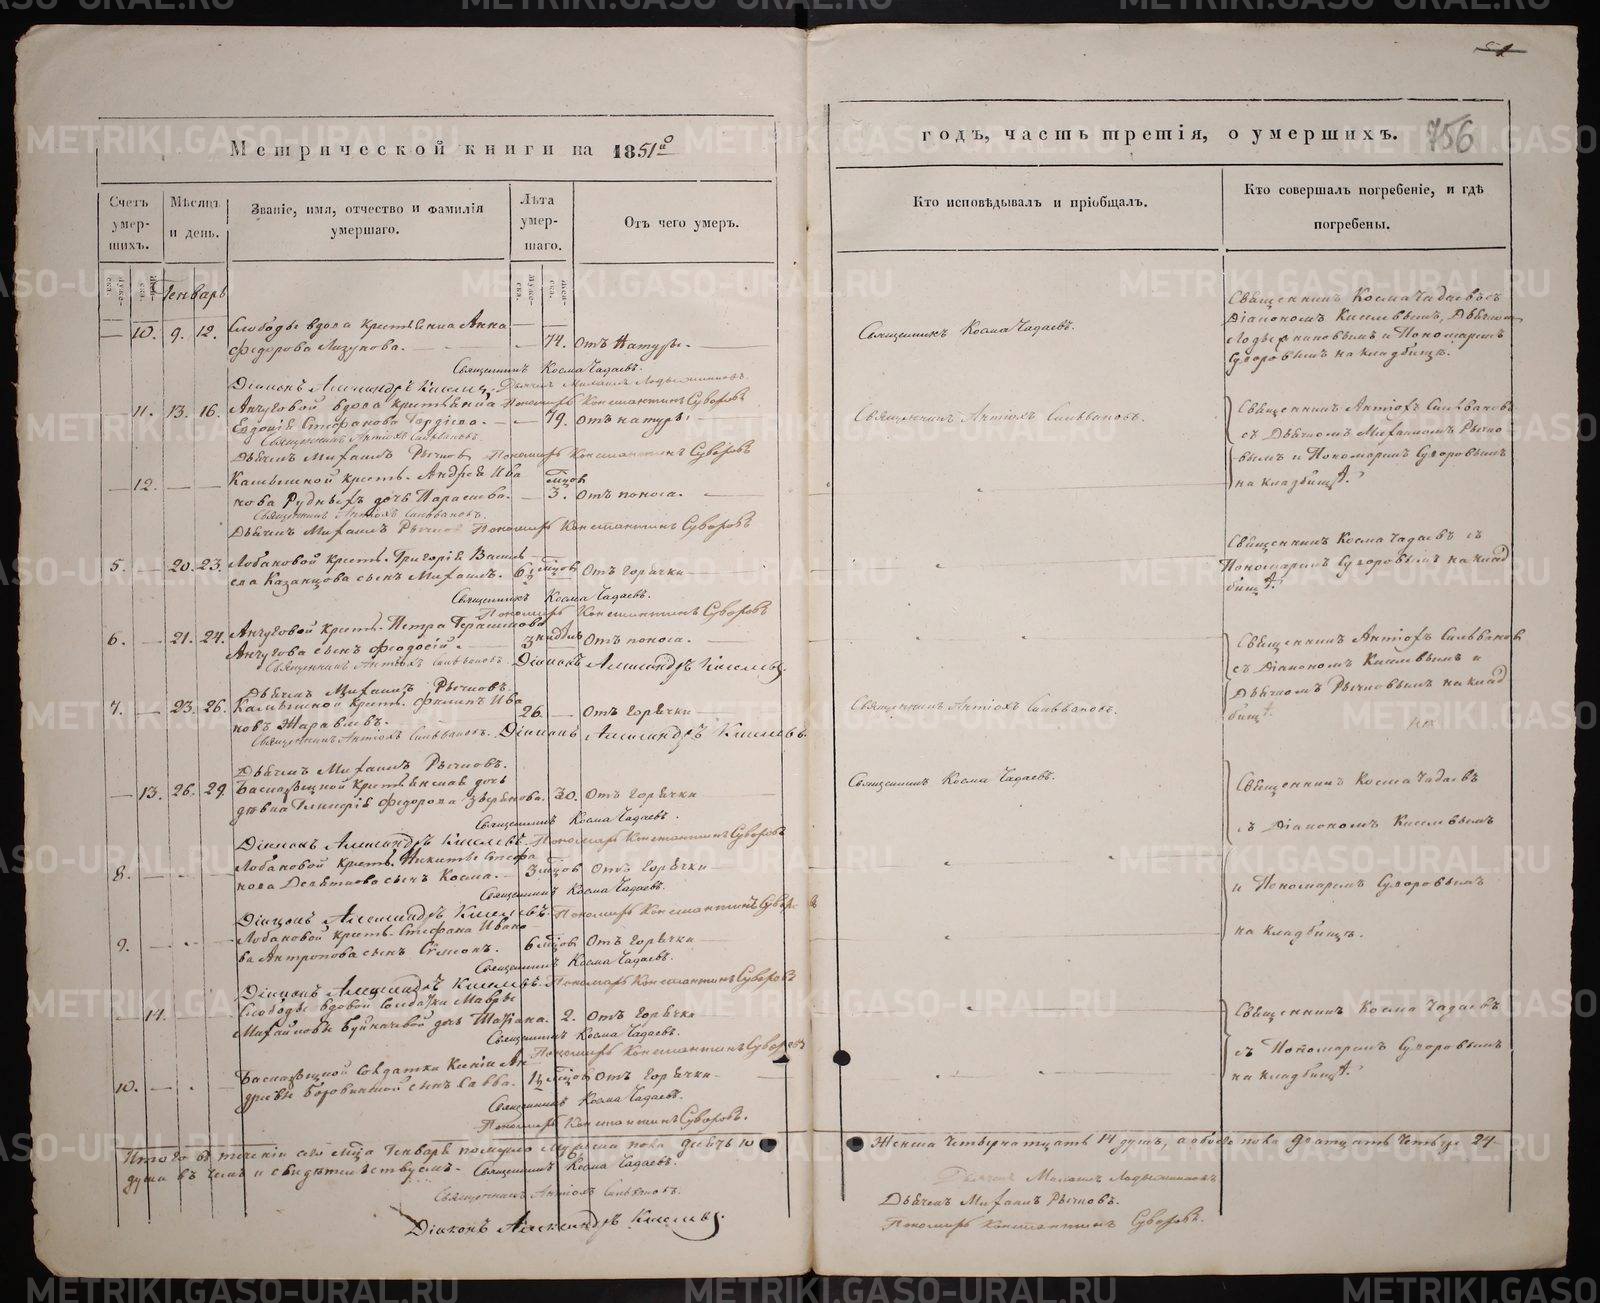 Метрической книги на 1851й
Счетъ умер-шихъ.
Мѣсяцъ и день.
Званіе, имя, отчество и фамилія умершаго.
Лѣта умер-шаго.
Отъ чего умеръ.
Генварь
10. 9. 12. Слободы вдова крестьянка Анна
Федорова 74. Отъ натуры.
Священникъ Косма Чадаевъ.
Діаконъ Александръ Киселевъ.
11. 13. 16. вдова крестьянка Пономарь Константинъ Суворовъ
Евдокія Стефанова 79. Отъ натуры.
Священникъ Антіохъ Сильвановъ.
Дьячекъ Михаилъ Рычковъ Пономарь Константинъ Суворовъ
12. крестьян. Андрея Ива
нова Рудныхъ дочь Параскева. 3. Отъ поноса.
Священникъ Антіохъ Сильвановъ.
Дьячекъ Михаилъ Рычковъ Пономарь Константинъ Суворовъ
5. 20. 23. Лобановой крест. Григорія Василь
ева Казанцова сынъ Михаилъ. Отъ горячки
Священникъ Косма Чадаевъ.
Пономарь Константинъ Суворовъ
6. 21. 24. крест. Петра Герасимова
сынъ Феодосій. 3 Отъ поноса.
Священникъ Антіохъ Сильвановъ Діаконъ Александръ Киселевъ.
Дьячекъ Михаилъ Рычковъ
7. 23. 26. крест. Филипъ Ива
новъ Журавлевъ. 26. Отъ горячки
Священникъ Антіохъ Сильвановъ. Діаконъ Александръ Киселевъ.
Дьячекъ Михаилъ Рычковъ.
13. 26. 29. дочь
дѣвка Федорова 30. Отъ горячки
Священникъ Косма Чадаевъ.
Діаконъ Александръ Киселевъ. Пономарь Константинъ Суворовъ
8. Лобановой крест. Никиты Стефа
нова сынъ Косма. 3 Отъ горячки
Священникъ Косма Чадаевъ.
Діаконъ Александръ Киселевъ. Пономарь Константинъ Суворовъ
9. Лобановой крест. Стефана Ивано
ва Антропова сынъ Симеонъ. 6 Отъ горячки
Священникъ Косма Чадаевъ.
Діаконъ Александръ Киселевъ. Пономарь Константинъ Суворовъ
14. Слободы вдовой солдатки Мавры
Михайловой дочь 2. Отъ горячки
Священникъ Косма Чадаевъ.
Пономарь Константинъ Суворовъ
10. солдатки Ксеніи Ан
дреевы сынъ Савва. Отъ горячки
Священникъ Косма Чадаевъ.
Пономарь Константинъ Суворовъ.
Итого въ теченіи сего Генваря померло мужеска пола десять 10
душъ въ чемъ и свидѣтельствуемъ. Священникъ Косма Чадаевъ.
Священникъ Антіохъ Сильвановъ.
Діаконъ Александръ Киселевъ.
годъ, часть третія, о умершихъ.
756
Кто исповѣдывалъ и пріобщалъ.
Кто совершалъ погребеніе, и гдѣ погребены.
Священникъ Косма Чадаевъ.
Священникъ Косма Чадаевъ съ
Діакономъ Киселевымъ, Дьячкомъ
и Пономаремъ
Суворовымъ на кладбищѣ.
Священникъ Антіохъ Сильвановъ.
Священникъ Антіохъ Сильвановъ
съ Дьячкомъ Михаиломъ Рычко
вымъ и Пономаремъ Суворовымъ
на кладбищѣ.
Священникъ Косма Чадаевъ съ
Пономаремъ Суворовымъ на клад
бищѣ.
Священникъ Антіохъ Сильвановъ
съ Діакономъ Киселевымъ и
Дьячкомъ Рычковымъ на клад
бищѣ.
Священникъ Антіохъ Сильвановъ.
Священникъ Косма Чадаевъ.
Священникъ Косма Чадаевъ
съ Діакономъ Киселевымъ
и Пономаремъ Суворовымъ
на кладбищѣ.
Священникъ Косма Чадаевъ
съ Пономаремъ Суворовымъ
на кладбищѣ.
Женска четырнатцать 14 душъ, а обоего пола дватцать четыре 24
Дьячекъ Михаилъ Рычковъ.
Пономарь Константинъ Суворовъ.
METRIKI.GASO-URAL.RU